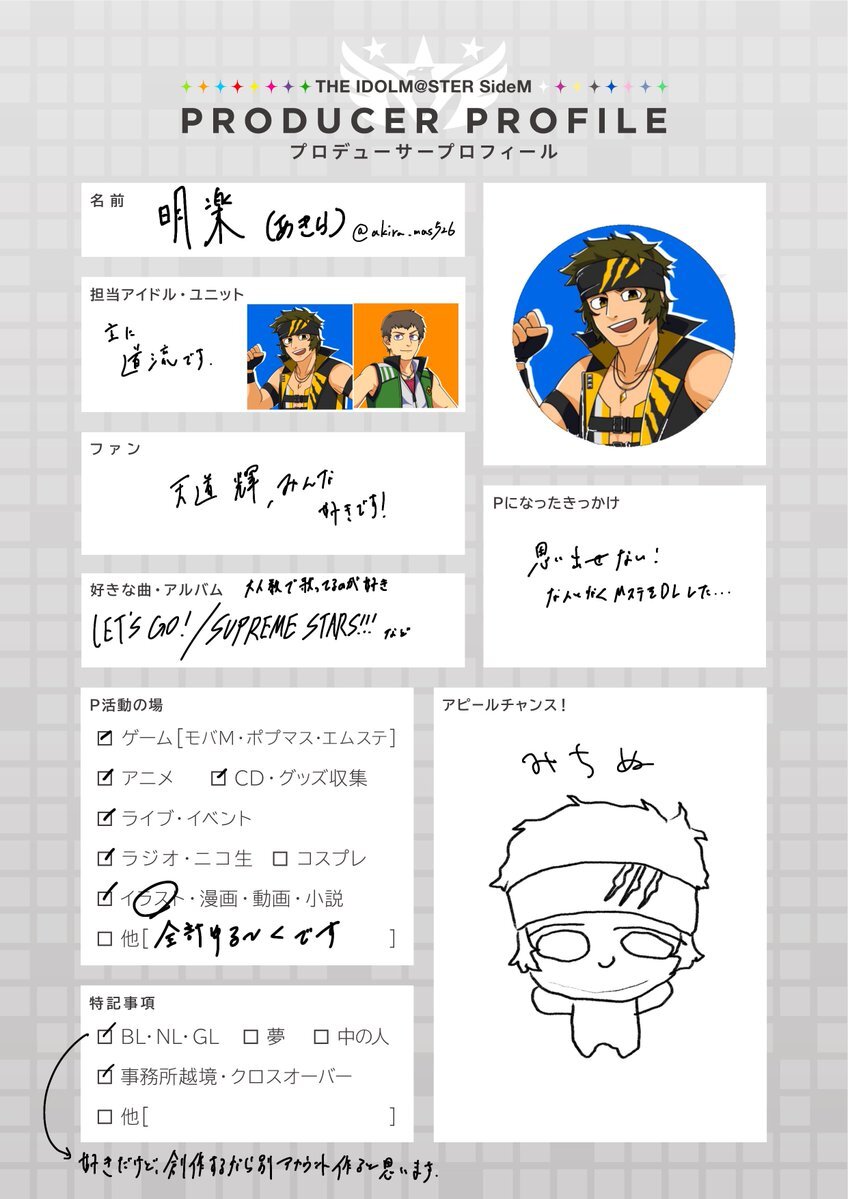 THE IDOLM@STER SideM
PRODUCER PROFILE
プロデューサープロフィール
名前
明楽 (あきら) @akira_mas526
担当アイドル・ユニット
主に
道流です.
ファン
天道 輝, みんな
好きです!
好きな曲・アルバム 大人数で歌ってるのが好き
LET'S GO! / SUPREME STARS!!! など
Pになったきっかけ
思い出せない!
なんとなくMステをDLした...
P活動の場
ゲーム[モバM・ポプマス・エムステ]
アニメ CD・グッズ収集
ライブ・イベント
ラジオ・ニコ生 コスプレ
イラスト・漫画・動画・小説
他[全部ゆる〜くです]
特記事項
BL・NL・GL 夢 中の人
事務所越境・クロスオーバー
他[ ]
好きだけど、創作するなら別アカウント作ると思います.
アピールチャンス!
みちぬ